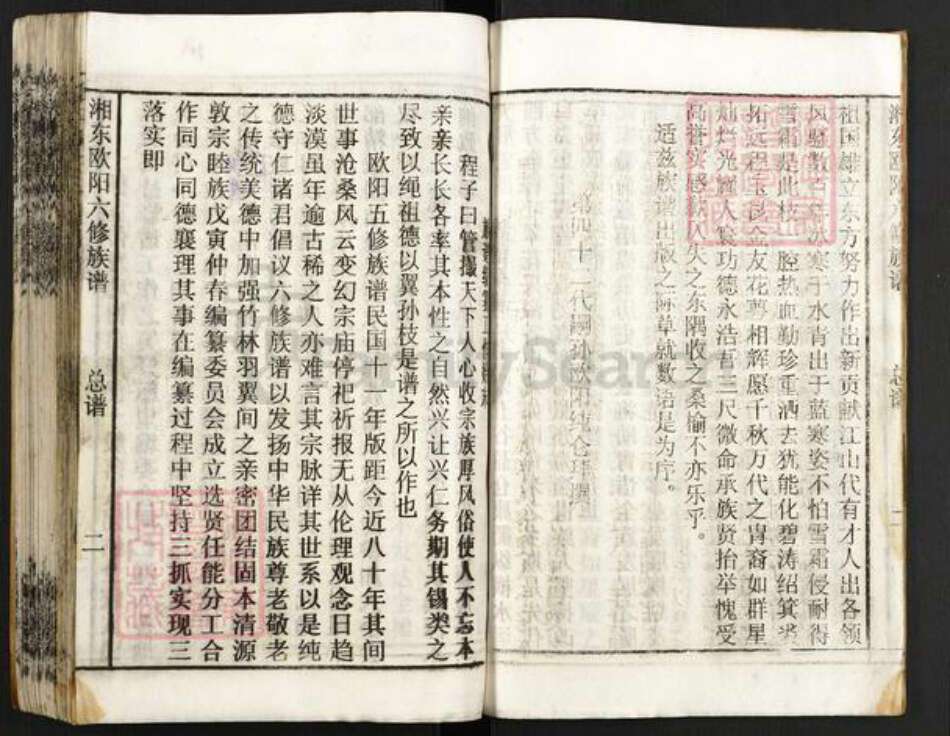 祖国雄立东方努力作出新贡献江山代有才人出各领
风骚数百年冰寒于水青出于蓝寒姿不怕雪霜侵耐得
雪霜是此枝 腔热血勤珍重洒去犹能化碧涛绍箕裘
拓远程玉 金友花萼相辉愿千秋万代之胄裔如群星
灿烂光 人寰功德永浩吾三尺微命承族贤抬举愧受
高誉实感 失之东隅收之桑榆不亦乐乎。
适兹族谱出版之 草就数语是为序。
第四十二代嗣孙欧阳纯仑 撰
湘东欧阳六修族谱 总谱 一
程子曰管摄天下人心收宗族厚风俗使人不忘本
亲亲长长各率其本性之自然兴让兴仁务期其锡类之
尽致以绳祖德以翼孙枝是谱之所以作也
欧阳五修族谱民国十一年版距今近八十年其间
世事沧桑风云变幻宗庙停祀祈报无从伦理观念日趋
淡漠虽年逾古稀之人亦难言其宗脉详其世系以是纯
德守仁诸君倡议六修族谱以发扬中华民族尊老敬老
之传统美德中加强竹林羽翼间之亲密团结固本清源
敦宗睦族戊寅仲春编纂委员会成立选贤任能分工合
作同心同德襄理其事在编纂过程中坚持三抓实现三
落实即
湘东欧阳六修族谱 总谱 二
FamilySearch